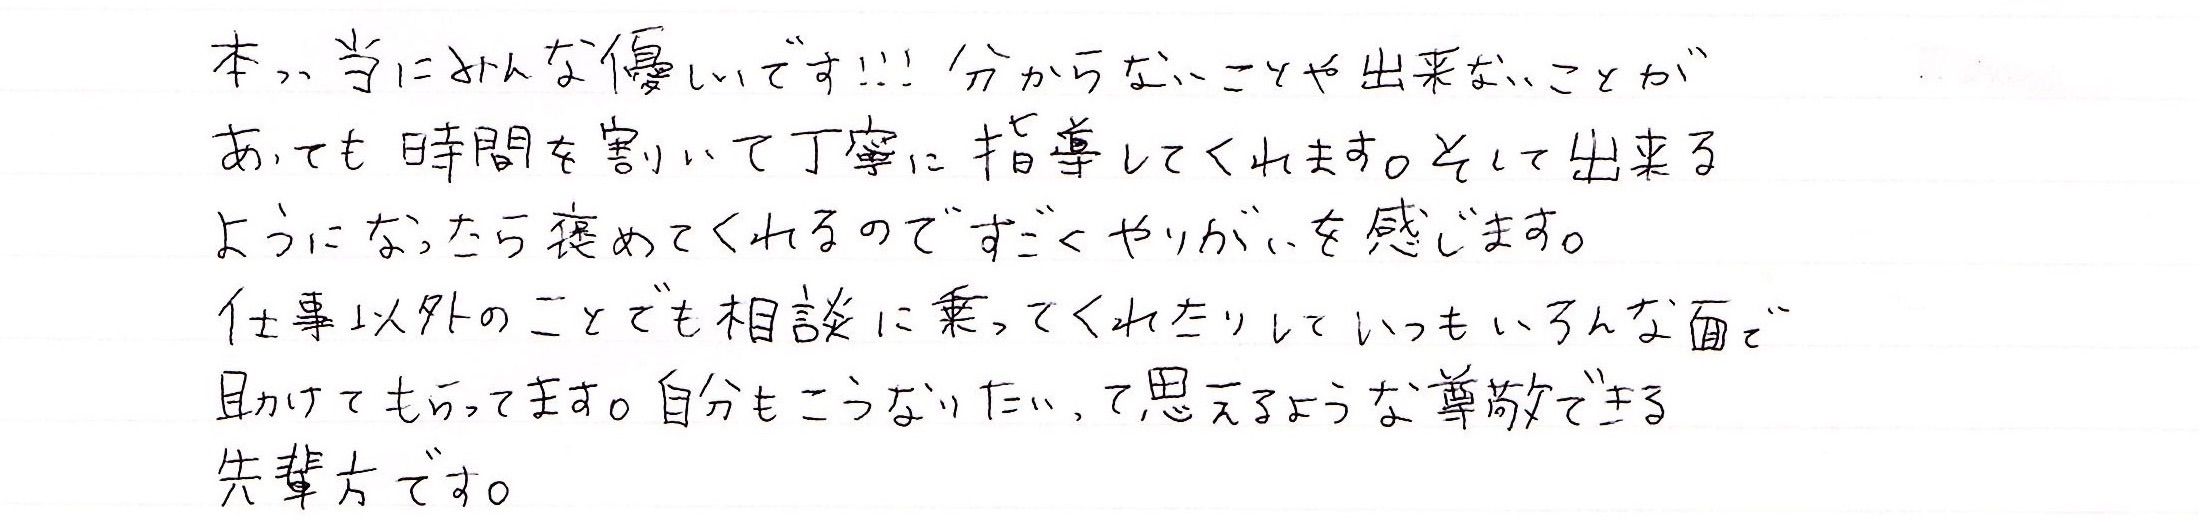 本っっ当にみんな優しいです!!! 分からないことや出来ないことが
あっても時間を割いて丁寧に指導してくれます。そして出来る
ようになったら褒めてくれるのですごくやりがいを感じます。
仕事以外のことでも相談に乗ってくれたりしていつもいろんな面で
助けてもらってます。自分もこうなりたいって思えるような尊敬できる
先輩方です。